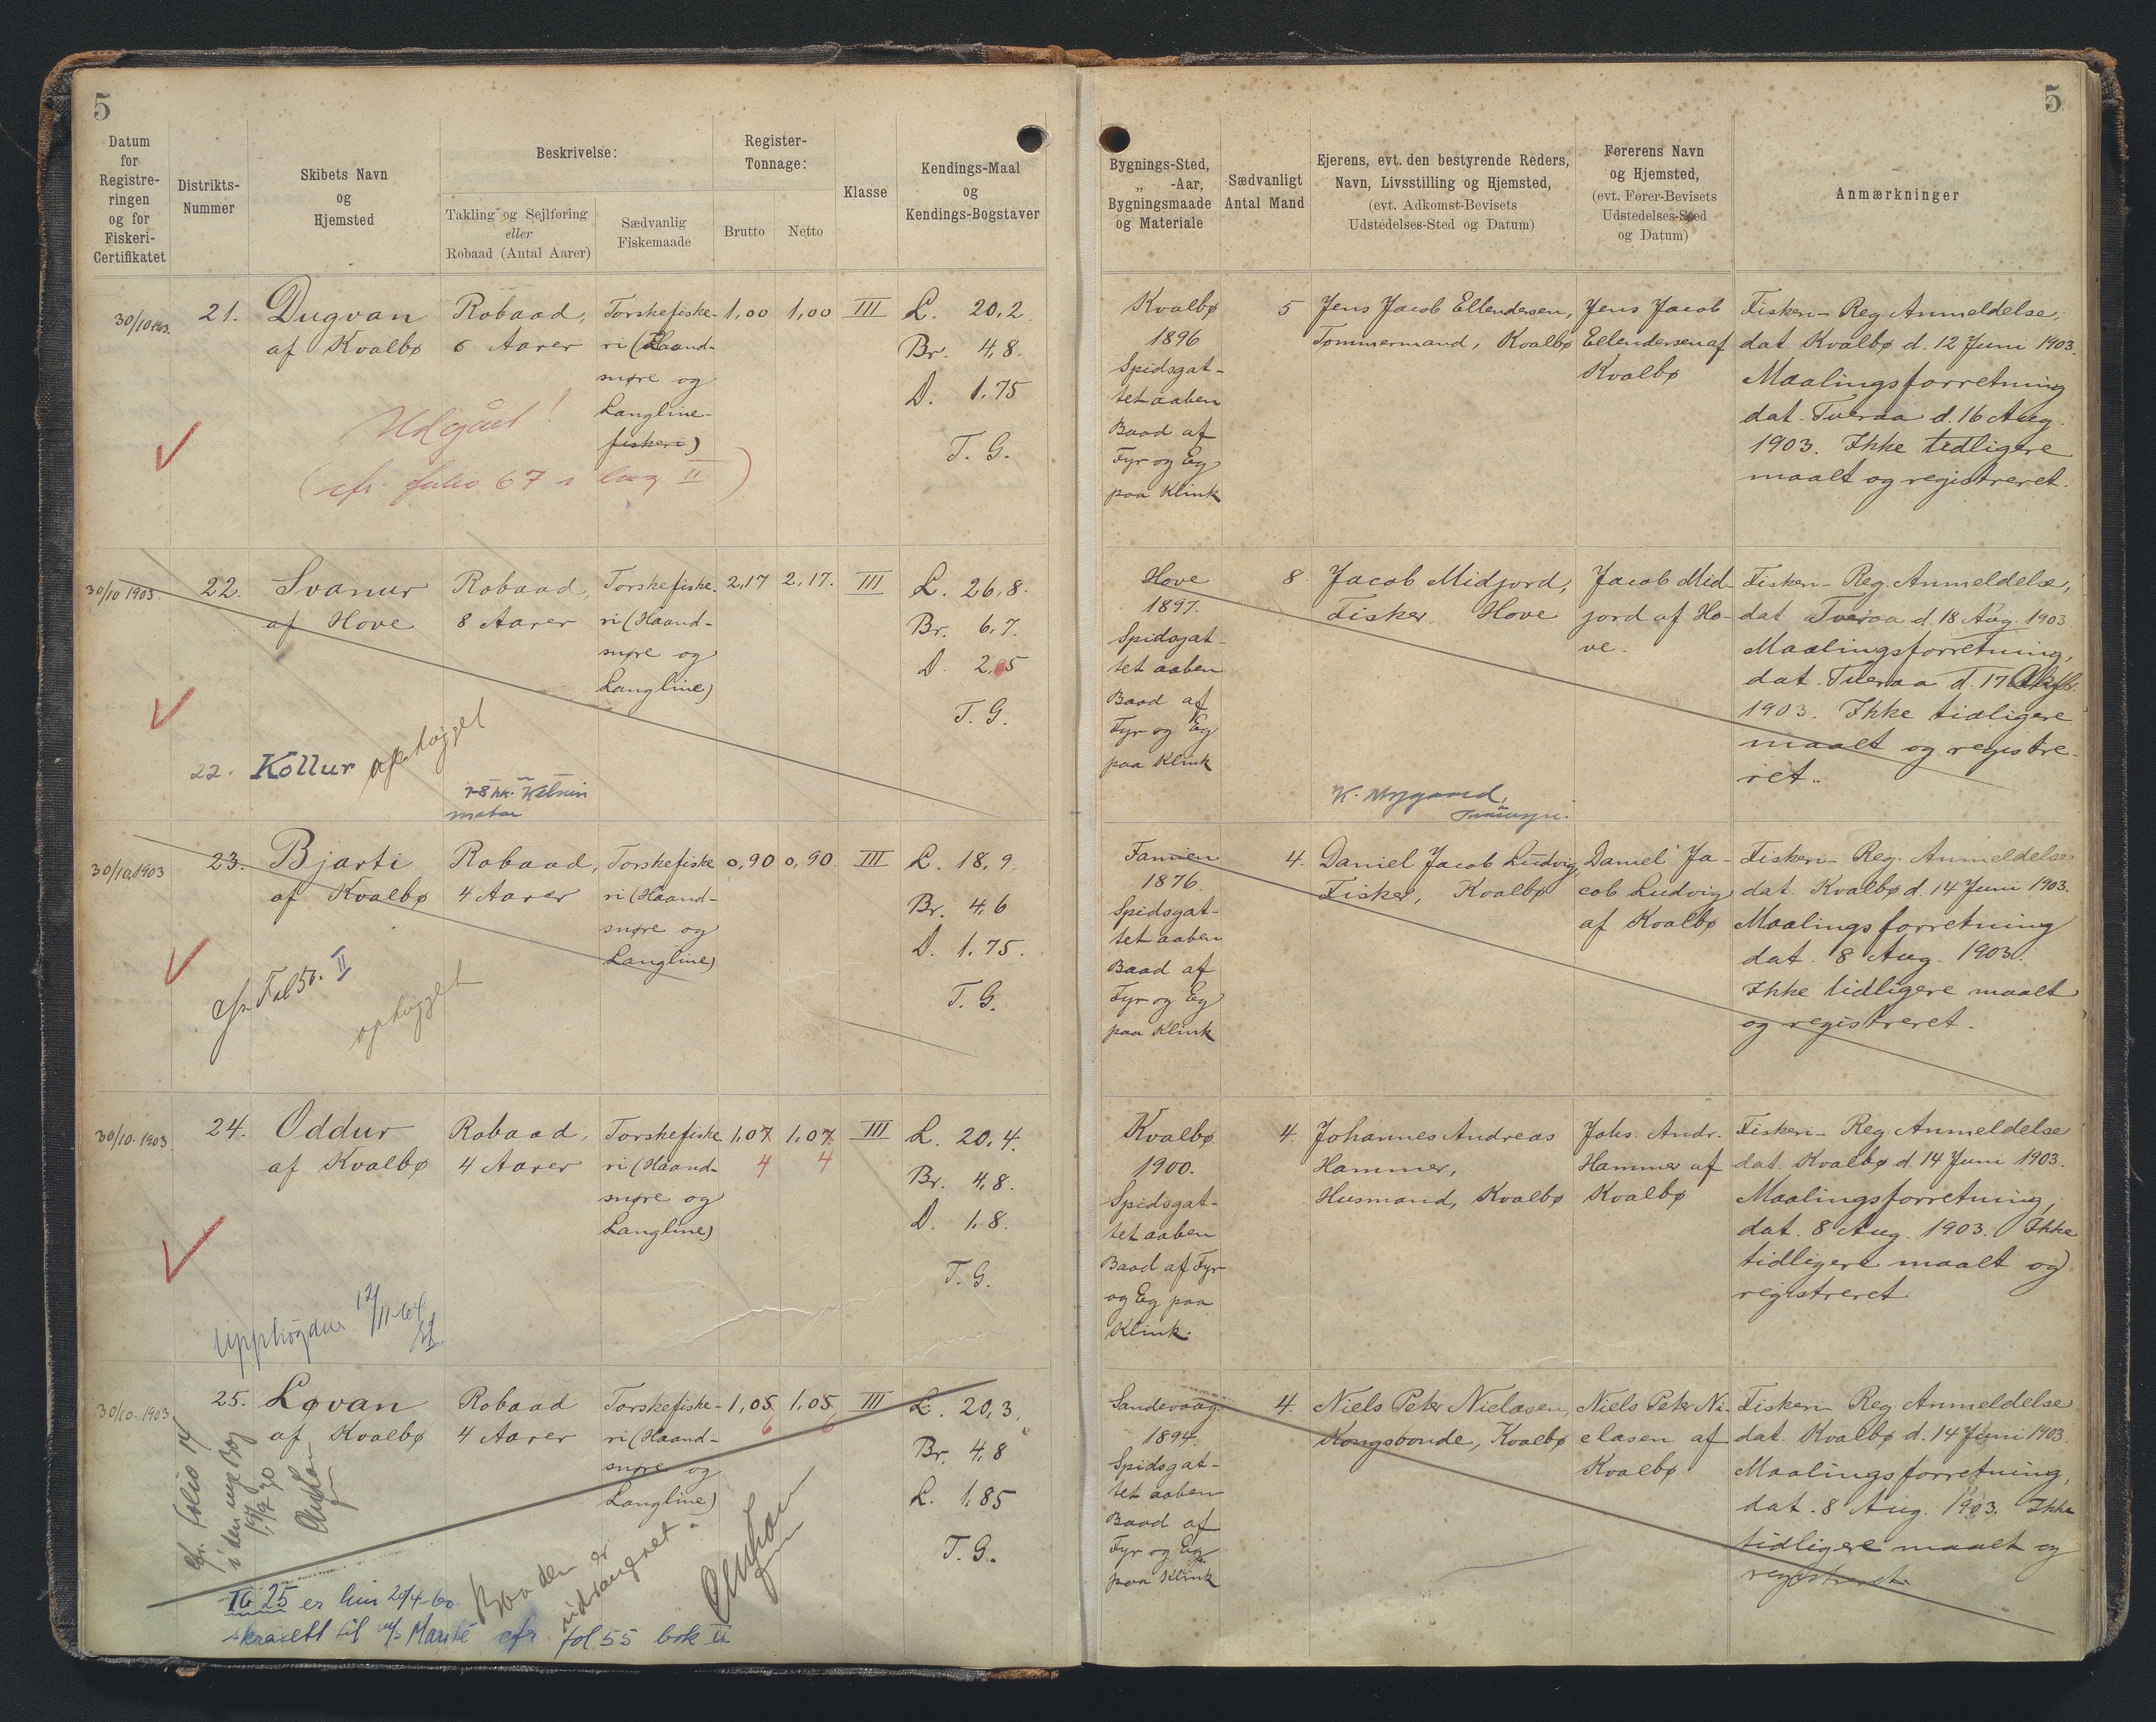 5
5
Datum
for
Registre-
ringen
og for
Fiskeri-
Certifikatet
Distrikts-
Nummer
Skibets Navn
og
Hjemsted
Beskrivelse:
Takling og Sejlføring
eller
Robaad (Antal Aarer)
Sædvanlig
Fiskemaade
Register-
Tonnage:
Brutto
Netto
Klasse
Kendings-Maal
og
Kendings-Bogstaver
Bygnings-Sted,
„ -Aar,
Bygningsmaade
og Materiale
Sædvanligt
Antal Mand
Ejerens, evt. den bestyrende Reders,
Navn, Livsstilling og Hjemsted,
(evt. Adkomst-Bevisets
Udstedelses-Sted og Datum)
Førerens Navn
og Hjemsted,
(evt. Fører-Bevisets
Udstedelses-Sted
og Datum)
Anmærkninger
30/10 1903.
21.
Dugvan
af Kvalbø
Robaad,
6 Aarer
Torskefiske-
ri (Haand-
snøre og
Langline-
fiskeri)
1,00
1,00
III
L. 20,2
Br. 4,8.
D. 1,75
T. G.
Udgået!
(cfr. folio 67 i bog II)
Kvalbø
1896
Spidsgat-
tet aaben
Baad af
Fyr og Eg
paa Klink
5
Jens Jacob Ellendersen,
Tømmermand, Kvalbø
Jens Jacob
Ellendersen af
Kvalbø
Fiskeri-Reg. Anmeldelse,
dat. Kvalbø d. 12 Juni 1903.
Maalingsforretning
dat. Tveraa d. 16 Aug.
1903. Ikke tidligere
maalt og registreret.
30/10 1903.
22.
Svanur
af Hove
Robaad,
8 Aarer
Torskefiske-
ri (Haand-
snøre og
Langline)
2,17
2,17.
III
L. 26,8.
Br. 6,7.
D. 2,05
T. G.
22. Kollur ophøgget
7-8 hk.
motor
Hove
1897.
Spidsgat-
tet aaben
Baad af
Fyr og Eg
paa Klink
8.
Jacob Midjord,
Fisker, Hove
K. Nygaard,
Jacob Mid-
jord af Ho-
ve.
Fiskeri-Reg. Anmeldelse,
dat. Tveraa d. 18 Aug. 1903
Maalingsforretning,
dat. Tveraa d. 17
1903. Ikke tidligere
maalt og registre-
ret.
30/10 1903
23.
Bjarti
af Kvalbø
Robaad,
4 Aarer
Torskefiske
ri (Haand-
snøre og
Langline)
0,90
0,90
III
L. 18,9.
Br. 4,6
D. 1,75.
T. G.
cfr. Fol 50. II
ophøgget
Famien
1876.
Spidsgat-
tet aaben
Baad af
Fyr og Eg
paa Klink
4.
Daniel Jacob Ludvig,
Fisker, Kvalbø
Daniel Ja-
cob Ludvig
af Kvalbø
Fiskeri-Reg. Anmeldelse
dat. Kvalbø d. 14 Juni 1903.
Maalingsforretning
dat. 8 Aug. 1903.
Ikke tidligere maalt
og registreret.
30/10. 1903
24.
Oddur
af Kvalbø
Robaad,
4 Aarer
Torskefiske
ri (Haand-
snøre og
Langline)
1,07
4
1,07
4
III
L. 20,4.
Br. 4,8.
D. 1,8.
T. G.
Upphøgdur 12/11-64
Kvalbø
1900.
Spidsgat-
tet aaben
Baad af Fyr
og Eg paa
Klink.
4.
Johannes Andreas
Hammer,
Husmand, Kvalbø
Johs. Andr.
Hammer af
Kvalbø
Fiskeri-Reg. Anmeldelse
dat. Kvalbø d. 14 Juni 1903.
Maalingsforretning,
dat. 8 Aug. 1903. Ikke
tidligere maalt og
registreret
30/10. 1903
25.
Løvan
af Kvalbø
Robaad
4 Aarer
Torskefiske-
ri (Haand-
snøre og
Langline)
1,05
6
1,05
6
III
L. 20,3,
Br. 4,8
L. 1,85
T. G.
cfr. Folio 14
i den nye Bog
Baaden er
udrangeret.
TG 25 er hin 29/4-60
skrásett til m/s Marité cfr. fol 55 bok II
Sandevaag.
1894.
Spidsgat-
tet aaben
Baad af
Fyr og Eg
paa Klink
4.
Niels Peter Nielasen,
Kongsbonde, Kvalbø
Niels Peter Ni-
elasen af
Kvalbø
Fiskeri-Reg. Anmeldelse
dat. Kvalbø d. 14 Juni 1903.
Maalingsforretning,
dat. 8 Aug. 1903. Ikke
tidligere maalt og
registreret